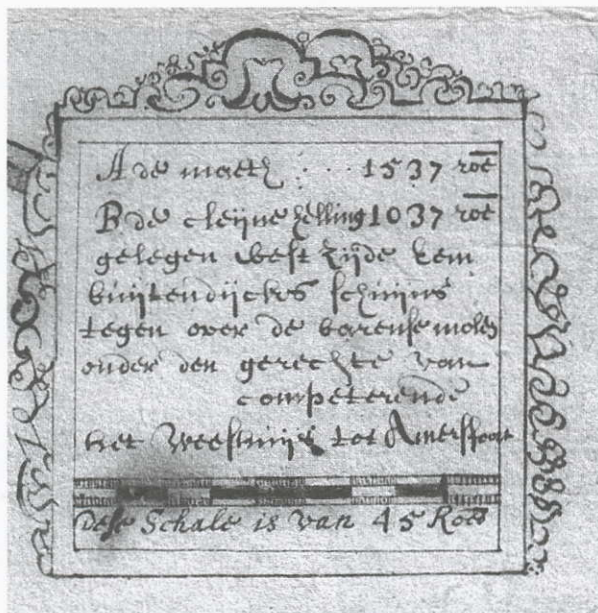 A de maeth : . . . 1537 roē
B de cleijne helling 1037 roē
gelegen west zijde eem
buijtendijcks schuijns
tegen over de barense molen
onder den gerechte van
competerende
het weeshuijs tot Amersfoort
Dese Schale is van 45 Roed